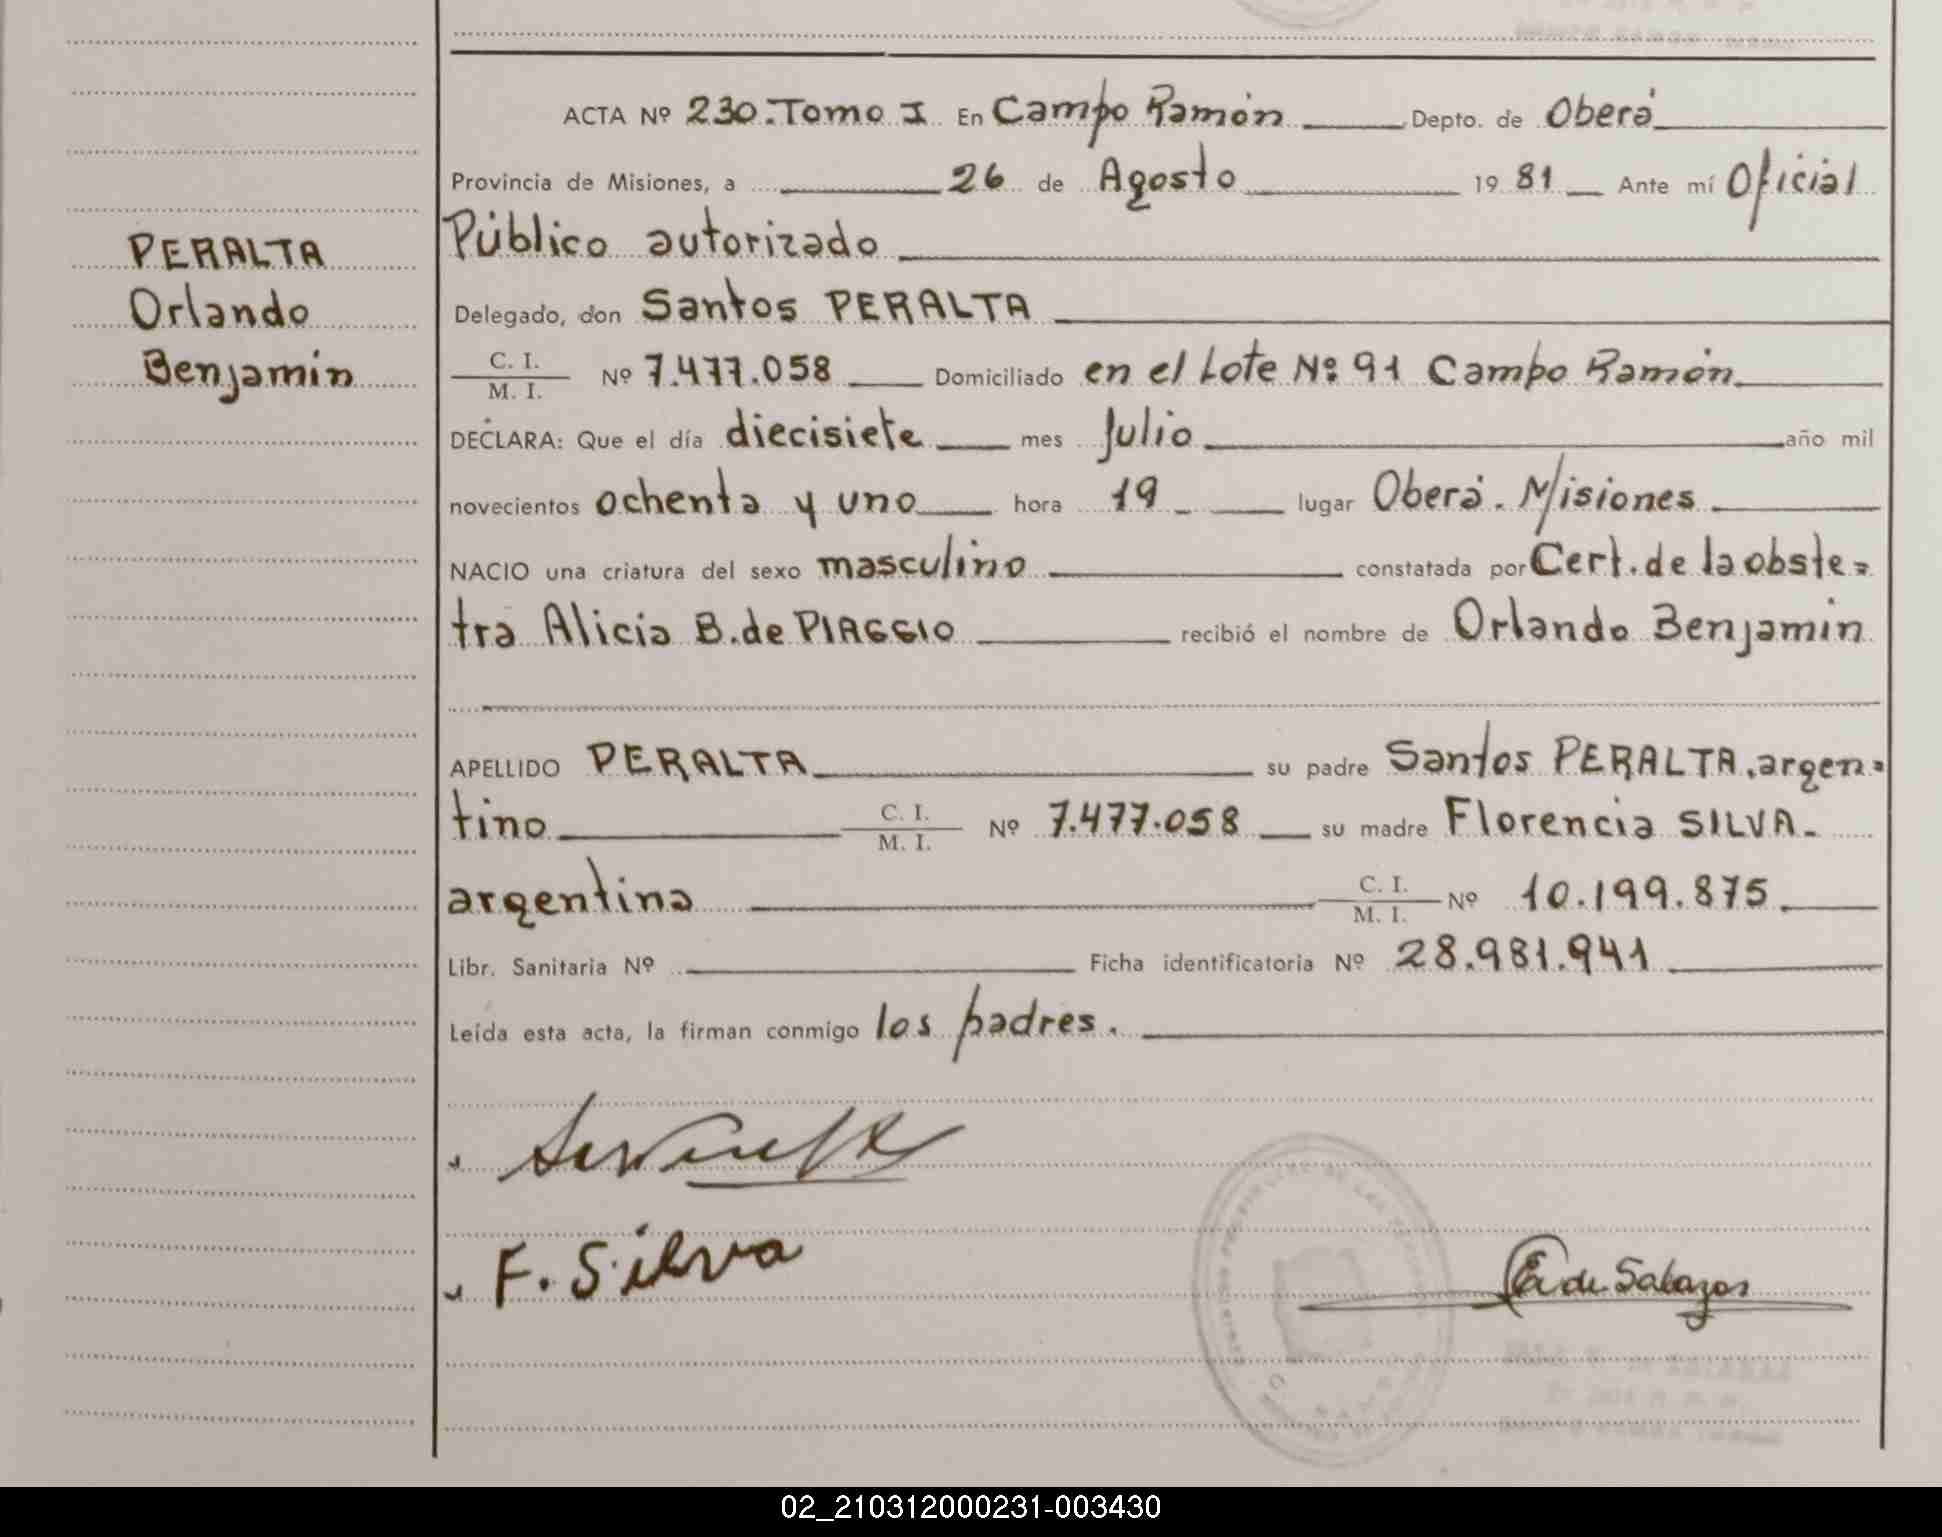 ACTA Nº 230. Tomo I En Campo Ramón Depto. de Oberá
Provincia de Misiones, a 26 de Agosto 19 81 Ante mí Oficial
Público autorizado
Delegado, don Santos PERALTA
C. I. / M. I. Nº 7.477.058 Domiciliado en el Lote Nº 91 Campo Ramón
DECLARA: Que el día diecisiete mes Julio año mil
novecientos ochenta y uno hora 19 lugar Oberá. Misiones
NACIO una criatura del sexo masculino constatada por Cert. de la obste=
tra Alicia B. de PIAGGIO recibió el nombre de Orlando Benjamín
APELLIDO PERALTA su padre Santos PERALTA, argen=
tino C. I. / M. I. Nº 7.477.058 su madre Florencia SILVA.
argentina C. I. / M. I. Nº 10.199.875
Libr. Sanitaria Nº Ficha identificatoria Nº 28.981.941
Leída esta acta, la firman conmigo los padres.
F. Silva
de Salazar
PERALTA
Orlando
Benjamín
02_210312000231-003430